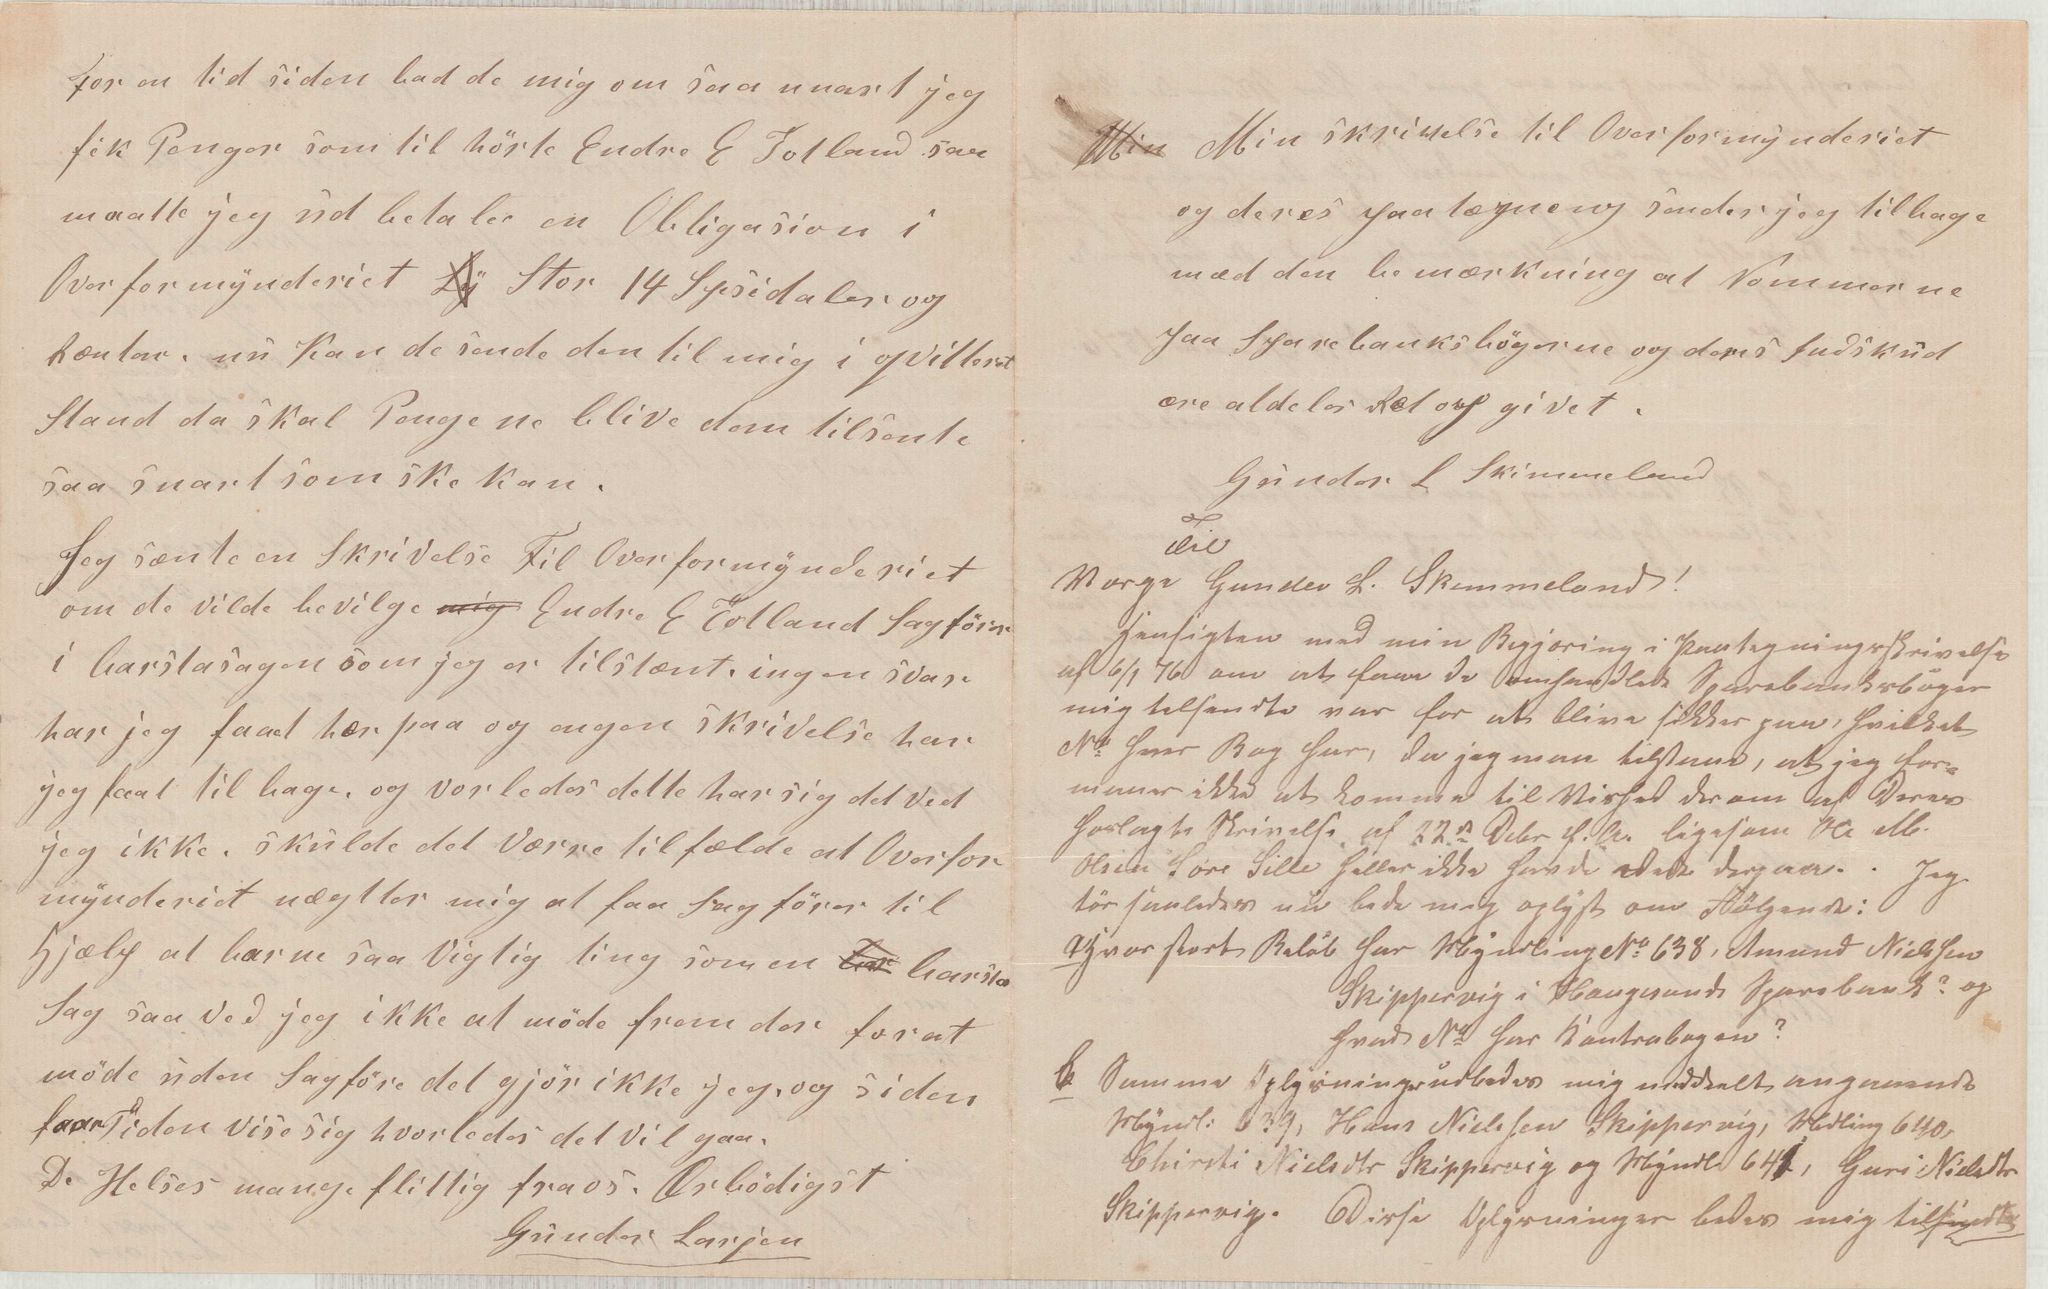 for en tid siden bad de mig om saa snart jeg
fik Penger som til hörte Endre E Totland saa
maatte jeg ud betalee en Obligasion i
Overformynderiet Stor 14 Spsidaler og
Rænter. nu Kan de sende den til mig i qvitteret
Stand da skal Pengene blive dem tilsente
saa snart som ske kan.
Jeg sænte en Skrivelse Til Overformynderiet
om de vilde bevilge mig Endre E Totland Sagförer
i barslasagen som jeg er tilstænt. ingen svar
har jeg faaet hær paa og engen skrivelse har
jeg faat til bage. og vorledes dette har sig det ved
jeg ikke. skulde det Værre tilfælde at Overfor
mynderiet nægtter mig at faa Sagförer til
Hjælp at barne saa Vigtig ting som en bar barsla
Sag saa ved jeg ikke at möde frem der for at
möde uden Sagföre det gjör ikke jeg. og siden
faar Tiden vise sig hvorledes det vil gaa.
De Helses mange flittig fra os. Ærbödigst
Gunder Larsen
Min Min skrivelse til Overformynderiet
og deres paatægneng sender jeg tilbage
mæd den bemærkning at Nommerne
paa Sparebanksbögerne og deres Indskud
ære aldeles Ræt opgivet.
Gunder L Skimmeland
Til
Værge Gunder L. Skimmeland!
Hensigten med min Begjæring i Paategningsskrivelse
af 6/1 76 om at faae de omhandlede Sparebanksbøger
mig tilsendte var for at blive sikker paa, hvilket
No hver Bog har, da jeg maa tilstaae, at jeg for-
maaer ikke at komme til Vished derom af Deres
forlagte Skrivelse af 22n Debr f. A. ligesom Ole M.
Olsen Lore Lille heller ikke havde Rede derpaa. Jeg
tör saaledes nu bede mig oplyst om Fölgende:
Hvor stort Belöb har Myndling No 638, Amund Nielsen
Skippervig i Haugesunds Sparebank? og
hvad No har Contrabogen?
b Samme Oplysninger udbedes mig meddeelt angaaende
Myndl: 639, Hans Nielsen Skippervig, Mdling 640,
Chirsti Nielsdtr Skippervig og Myndl 641, Guri Nielsdtr
Skippervig. Disse Oplysninger bedes mig tilsendte